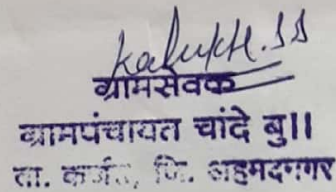 ग्रामसेवक
ग्रामपंचायत चांदे बु॥
ता. कर्जत, जि. अहमदनगर